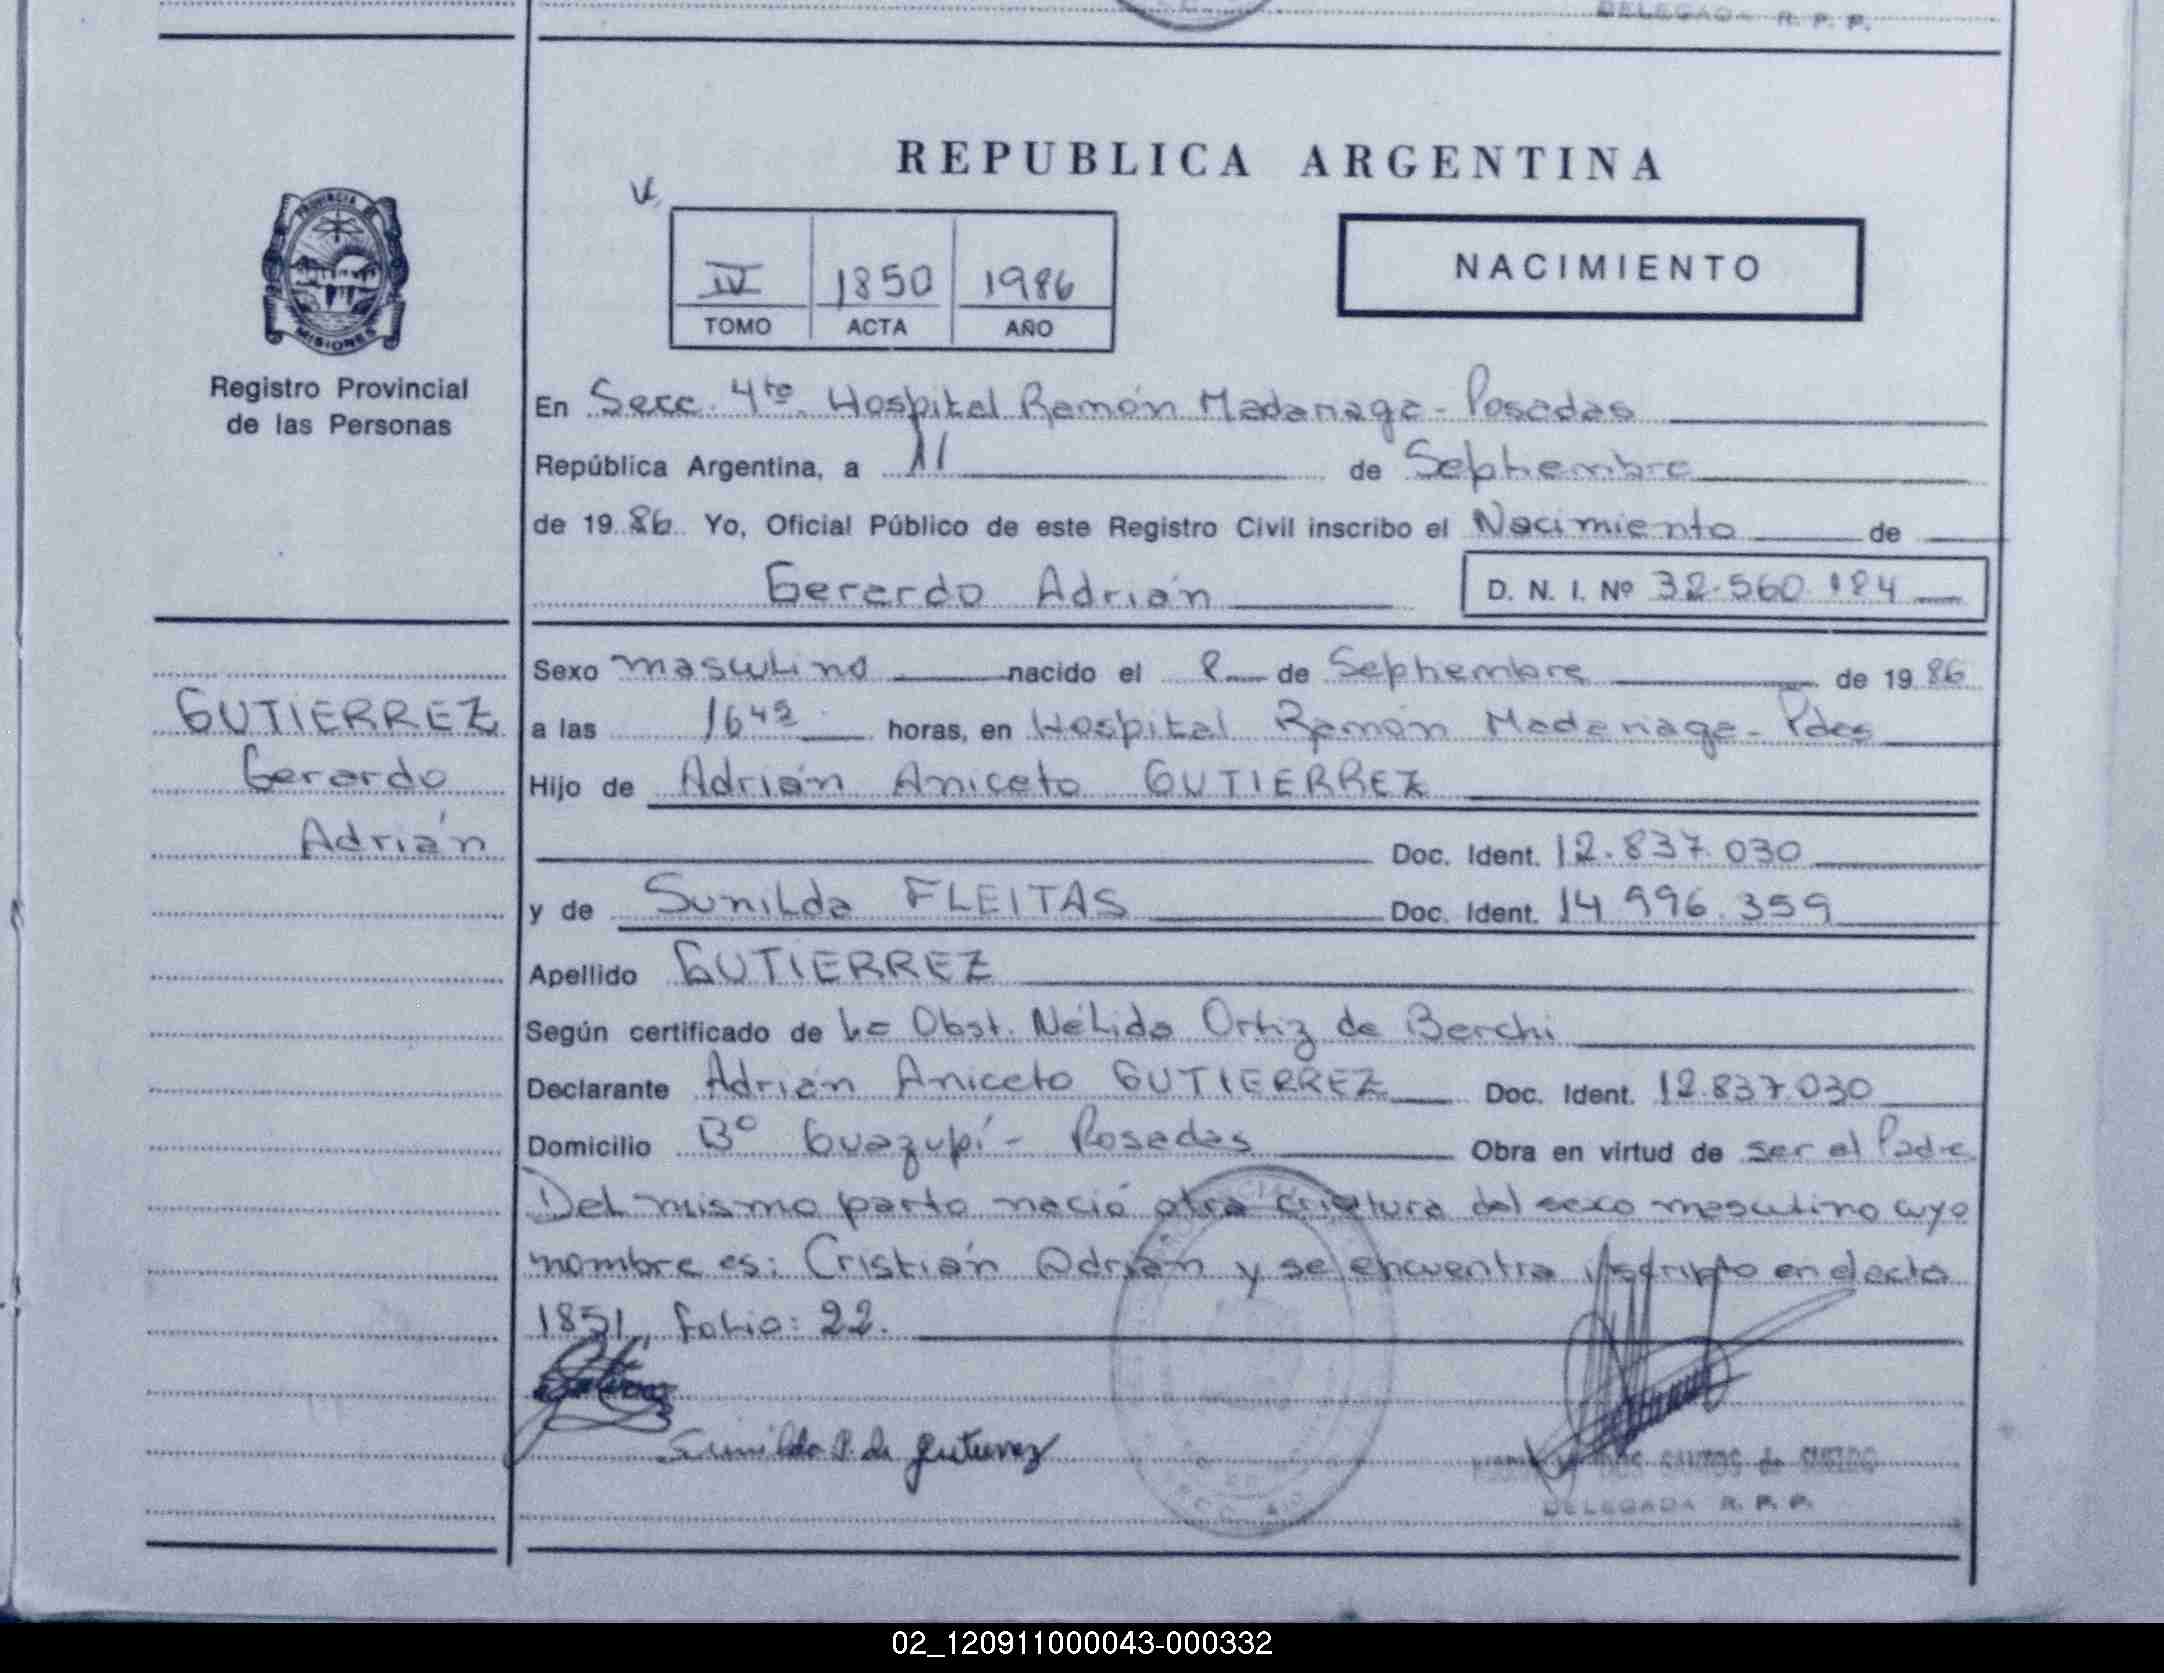 DELEGADA R. P. P.
REPUBLICA ARGENTINA
PROVINCIA DE
MISIONES
Registro Provincial
de las Personas
IV 1850 1986
TOMO ACTA AÑO
NACIMIENTO
En Secc. 4ta. Hospital Ramón Madariaga - Posadas
República Argentina, a 11 de Septiembre
de 19 86 Yo, Oficial Público de este Registro Civil inscribo el Nacimiento de
Gerardo Adrián D. N. I. Nº 32.560.184
Sexo masculino nacido el 8 de Septiembre de 19 86
a las 16 horas, en Hospital Ramón Madariaga - Pdas
Hijo de Adrián Aniceto GUTIERREZ
Doc. Ident. 12.837.030
y de Sunilda FLEITAS Doc. Ident. 14.996.359
Apellido GUTIERREZ
Según certificado de la Obst. Nélida Ortiz de Berchi
Declarante Adrián Aniceto GUTIERREZ Doc. Ident. 12.837.030
Domicilio Bº Guazupí - Posadas Obra en virtud de ser el Padre
Del mismo parto nació otra criatura del sexo masculino cuyo
nombre es: Cristián Adrián y se encuentra inscripto en el acta
1851, folio: 22.
GUTIERREZ
Gerardo
Adrián
Sunilda de Gutierrez
SANTOS de
DELEGADA R. P. P.
02_120911000043-000332